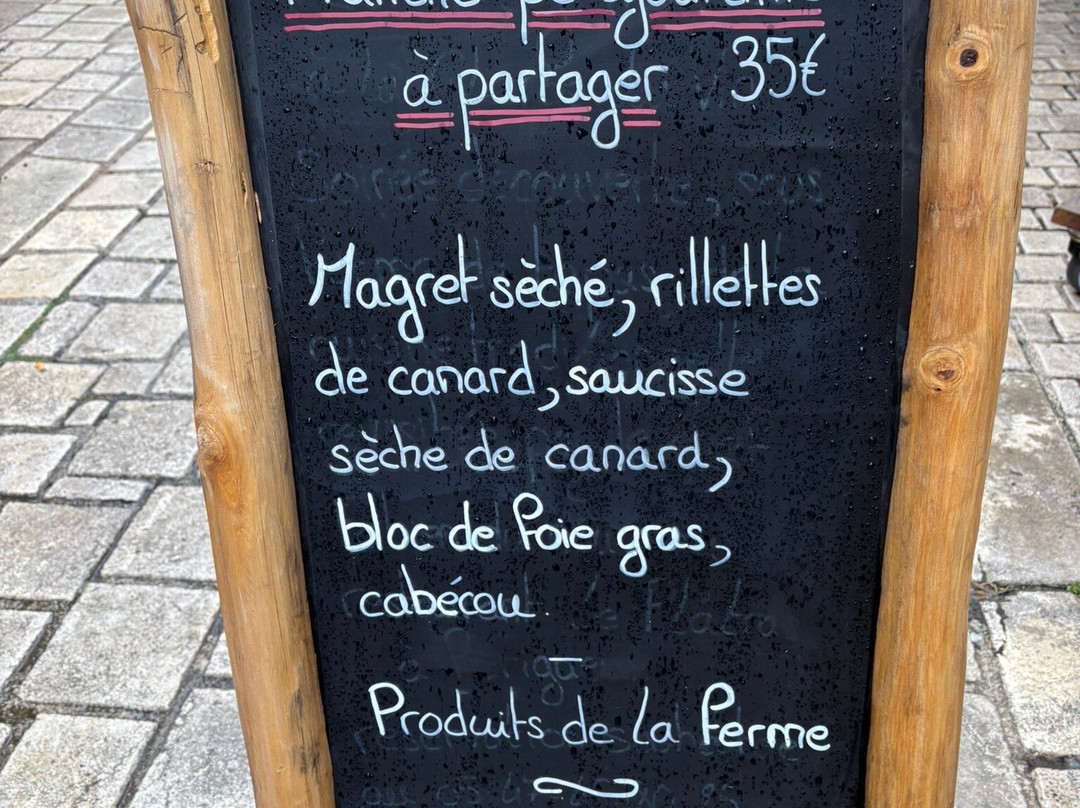 à partager 35€
Magret sèché, rillettes
de canard, saucisse
sèche de canard,
bloc de Foie gras,
cabécou.
Produits de la Ferme